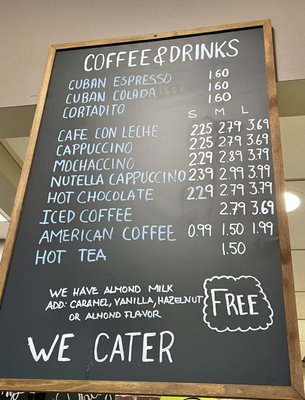 COFFEE & DRINKS
CUBAN ESPRESSO 1.60
CUBAN COLADA 1.60
CORTADITO 1.60
S M L
CAFE CON LECHE 2.25 2.79 3.69
CAPPUCCINO 2.25 2.79 3.69
MOCHACCINO 2.29 2.89 3.79
NUTELLA CAPPUCCINO 2.39 2.99 3.99
HOT CHOCOLATE 2.29 2.79 3.79
ICED COFFEE 2.79 3.69
AMERICAN COFFEE 0.99 1.50 1.99
HOT TEA 1.50
WE HAVE ALMOND MILK
ADD: CARAMEL, VANILLA, HAZELNUT
OR ALMOND FLAVOR
FREE
WE CATER